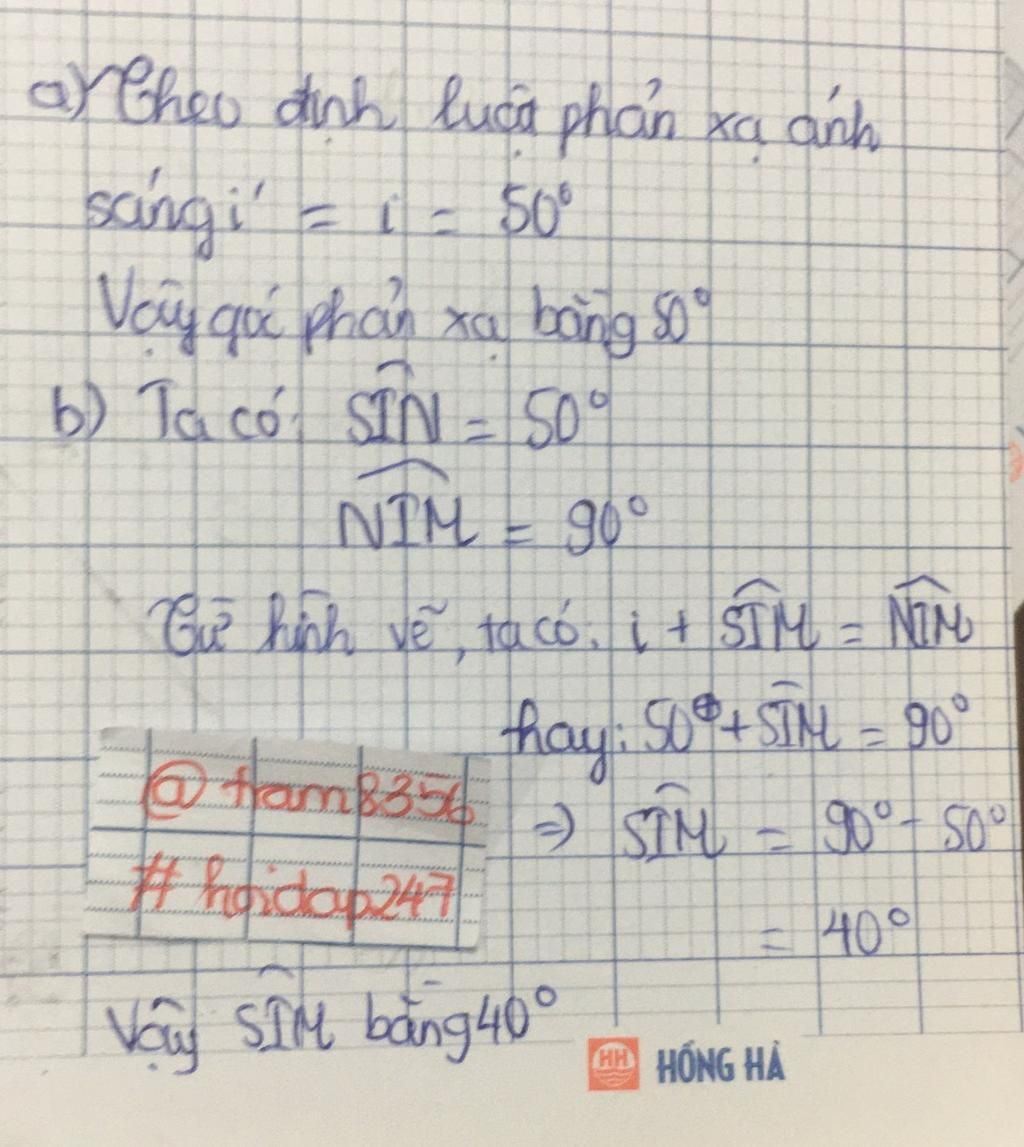 a) Theo định luật phản xạ ánh
sáng i' = i = 50°
Vậy góc phản xạ bằng 50°
b) Ta có: SIN = 50°
NIM = 90°
Từ hình vẽ, ta có: i + SIM = NIM
hay: 50° + SIM = 90°
⇒ SIM = 90° - 50°
= 40°
@tram8356
#hoidap247
Vậy SIM bằng 40°
HH HỒNG HÀ